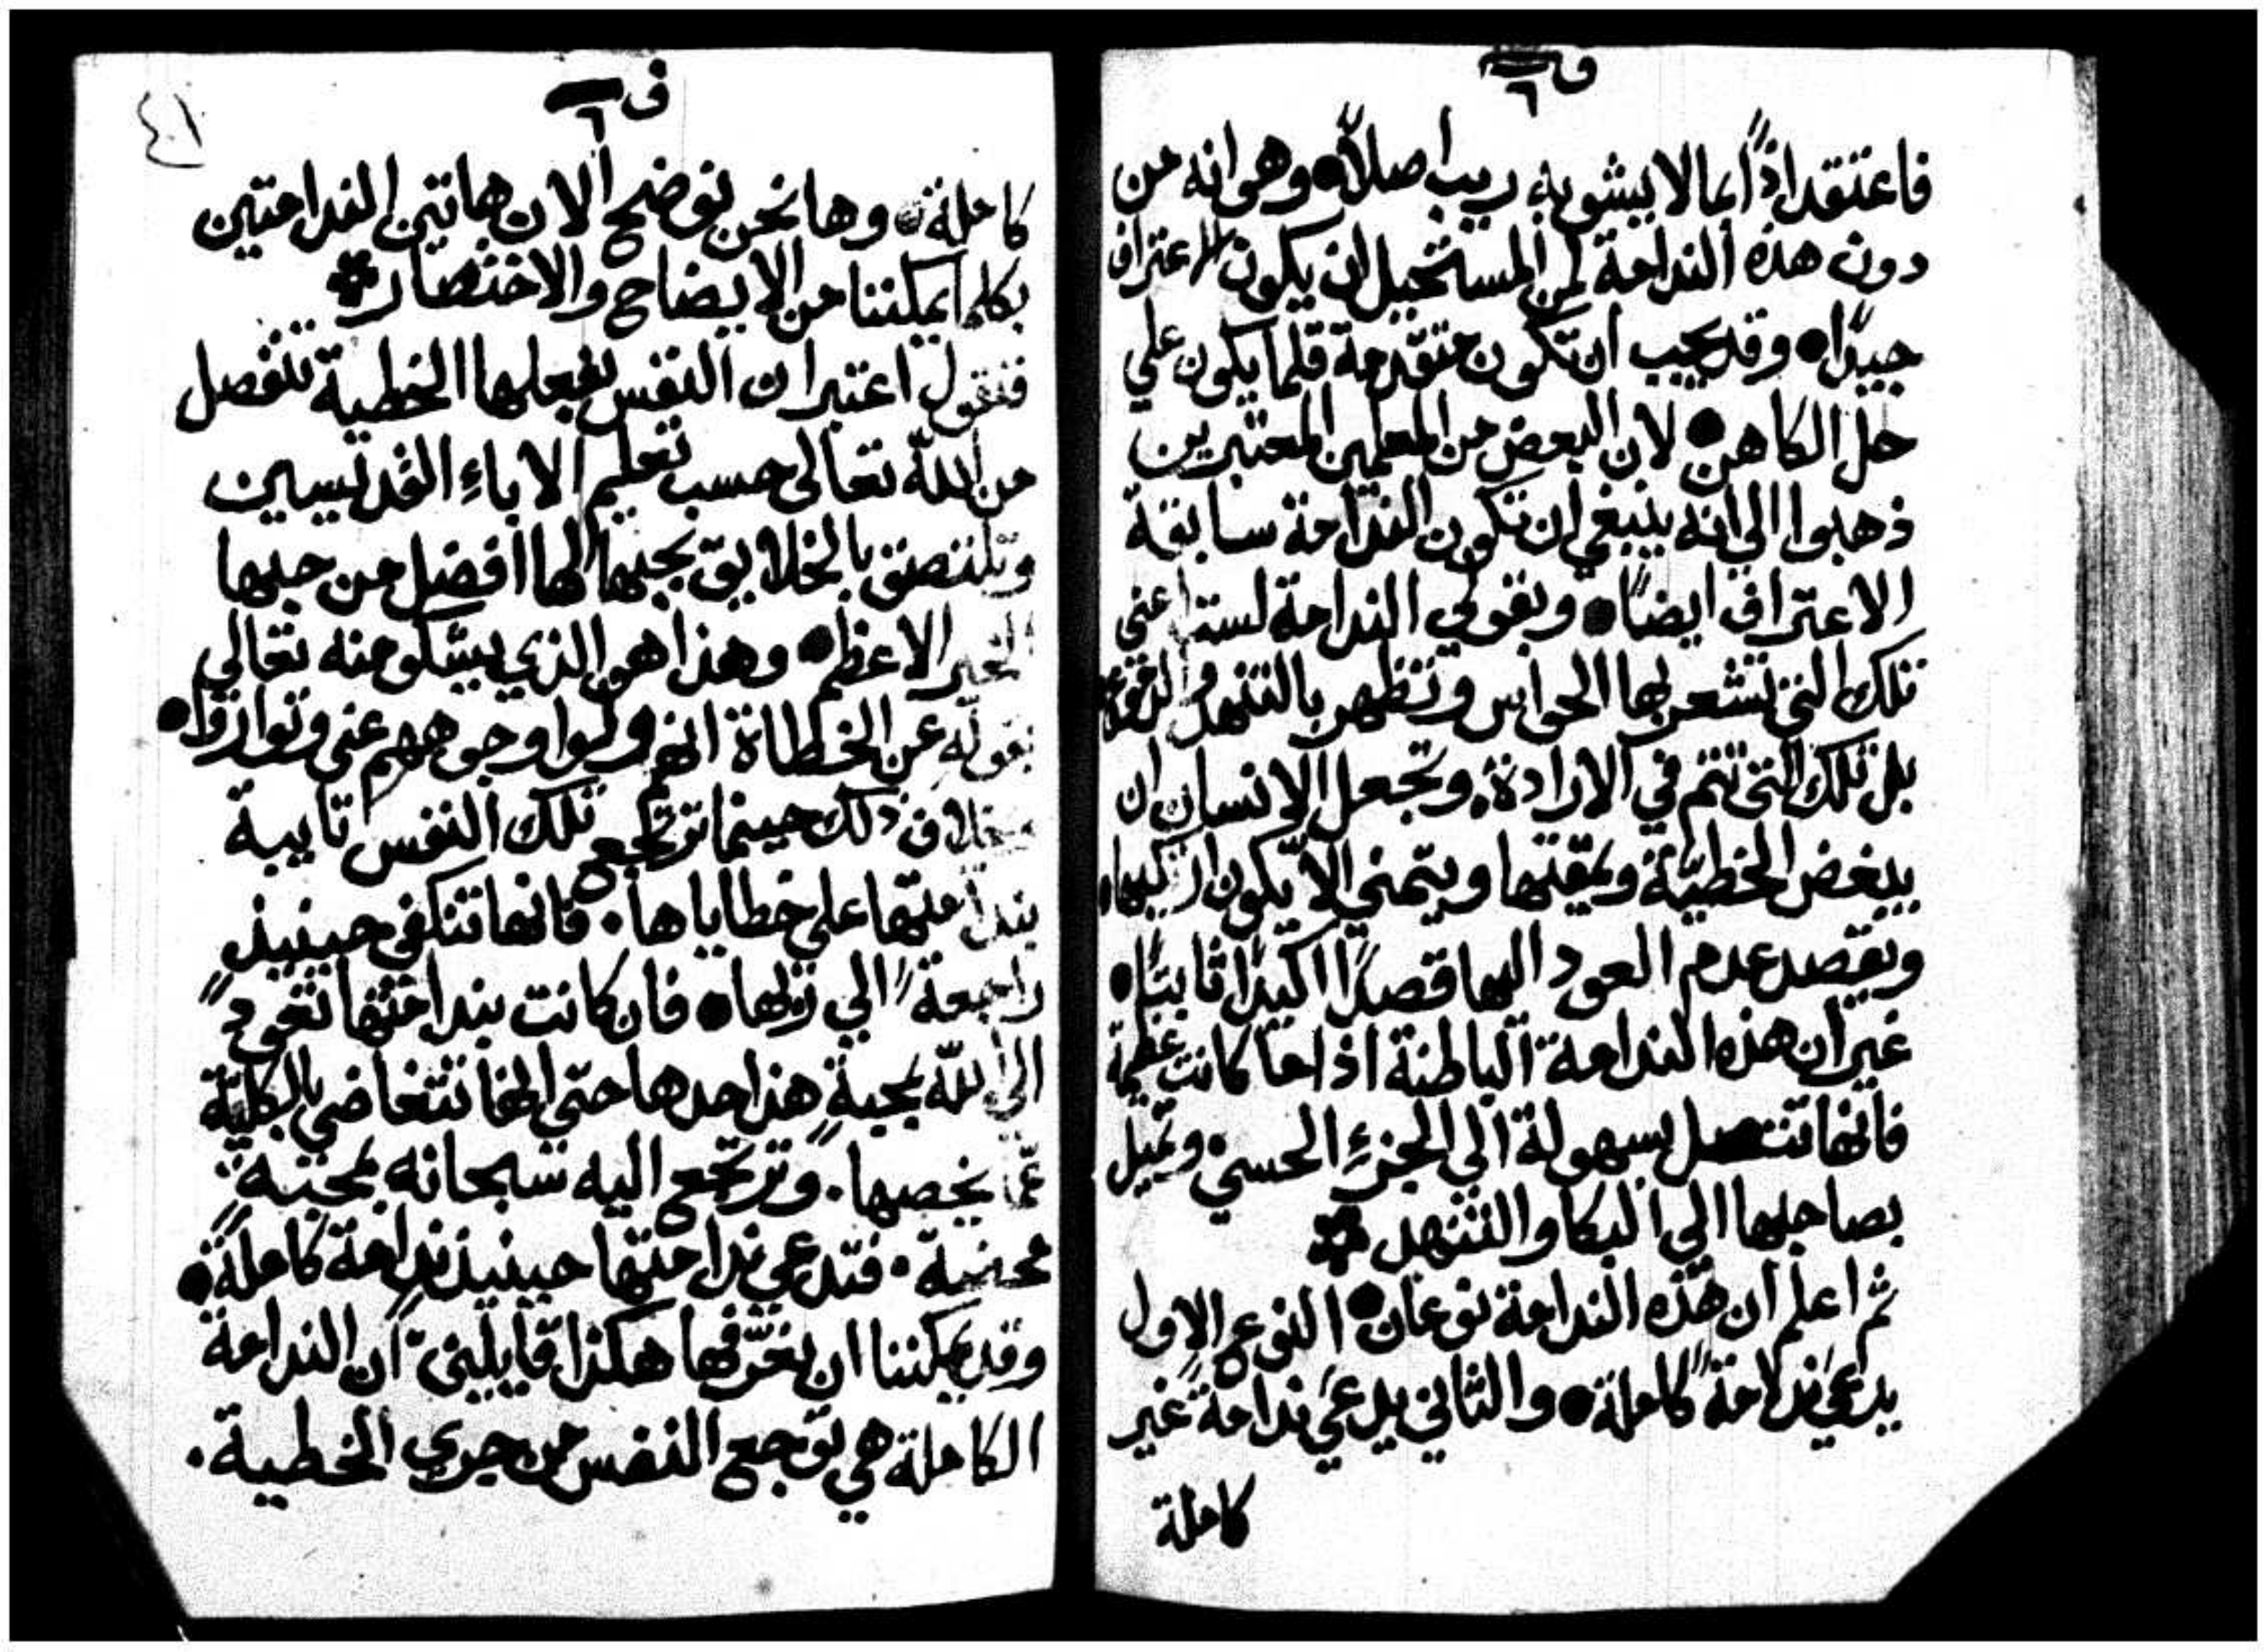 ف ٦
فاعتقد اذًا بما لا يشوبه ريب اصلاً وهو انه من
دون هذه الندامة لمن المستحيل ان يكون الاعتراف
جيدًا وقد يجب ان تكون متقدمة قلما يكون علي
حل الكاهن لان البعض من المعلمين المعتبرين
ذهبوا الي انه ينبغي ان تكون الندامة سابقة
الاعتراف ايضًا وبقولي الندامة لست اعني
تلك التي تشعر بها الحواس وتظهر بالتنهد والدموع
بل تلك التي تتم في الارادة وتجعل الانسان ان
يبغض الخطيّة ويمقتها ويتمني الاّ يكون ارتكبها
ويقصد عدم العود اليها قصدًا اكيدًا ثابتًا
غير ان هذه الندامة الباطنة اذا ما كانت عظيمة
فانها تتصل بسهولة الي الجزءِ الحسي وتميل
بصاحبها الي البكا والتنهد
ثم اعلم ان هذه الندامة نوعان النوع الاول
يدعي ندامةً كاملة والثاني يدعي ندامة غير
كاملة
ف ٦
٤١
كاملة وها نحن نوضح الان هاتين الندامتين
بكلما يمكننا من الايضاح والاختصار
فنقول اعتبر ان النفس بفعلها الخطية تنفصل
من الله تعالى حسب تعليم الاباءِ القديسين
وتلتصق بالخلايق بحبها لها افضل من حبها
الخير الاعظم وهذا هو الذي يشكو منه تعالي
بقوله عن الخطاة انهم ولوا وجوههم عني وتواروا
بخلاف ذلك حينما ترتجع تلك النفس تايبة
بندامتها علي خطاياها فانها تنكفي حينيذٍ
راجعةً الي ربها فان كانت بندامتها تعود
الي الله بمحبةٍ هذا حدها حتي انها تتغاضي بالكليّة
عمّا يخصها وترتجع اليه سبحانه بمحبة
محضة فتدعي ندامتها حينيذ ندامة كاملة
وقد يمكننا ان نعرّفها هكذا قايلين ان الندامة
الكاملة هي توجع النفس من جري الخطية